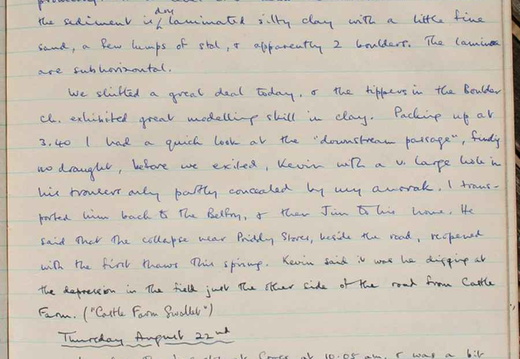 the sediment is dry laminated silty clay with a little fine
sand, a few lumps of stal, & apparently 2 boulders. The laminae
are subhorizontal.
We shifted a great deal today, & the tippers in the Boulder
Ch. exhibited great modelling skill in clay. Packing up at
3.40 I had a quick look at the "downstream passage", finding
no draught, before we exited, Kevin with a v. large hole in
his trousers only partly concealed by my anorak. I trans-
ported him back to the Belfry, & then Jim to his home. He
said that the collapse near Priddy Stores, beside the road, reopened
with the first thaws this spring. Kevin said it was he digging at
the depression in the field just the other side of the road from Castle
Farm. ("Castle Farm Swallet")
Thursday August 22nd
at 10.05 am, & was a bit